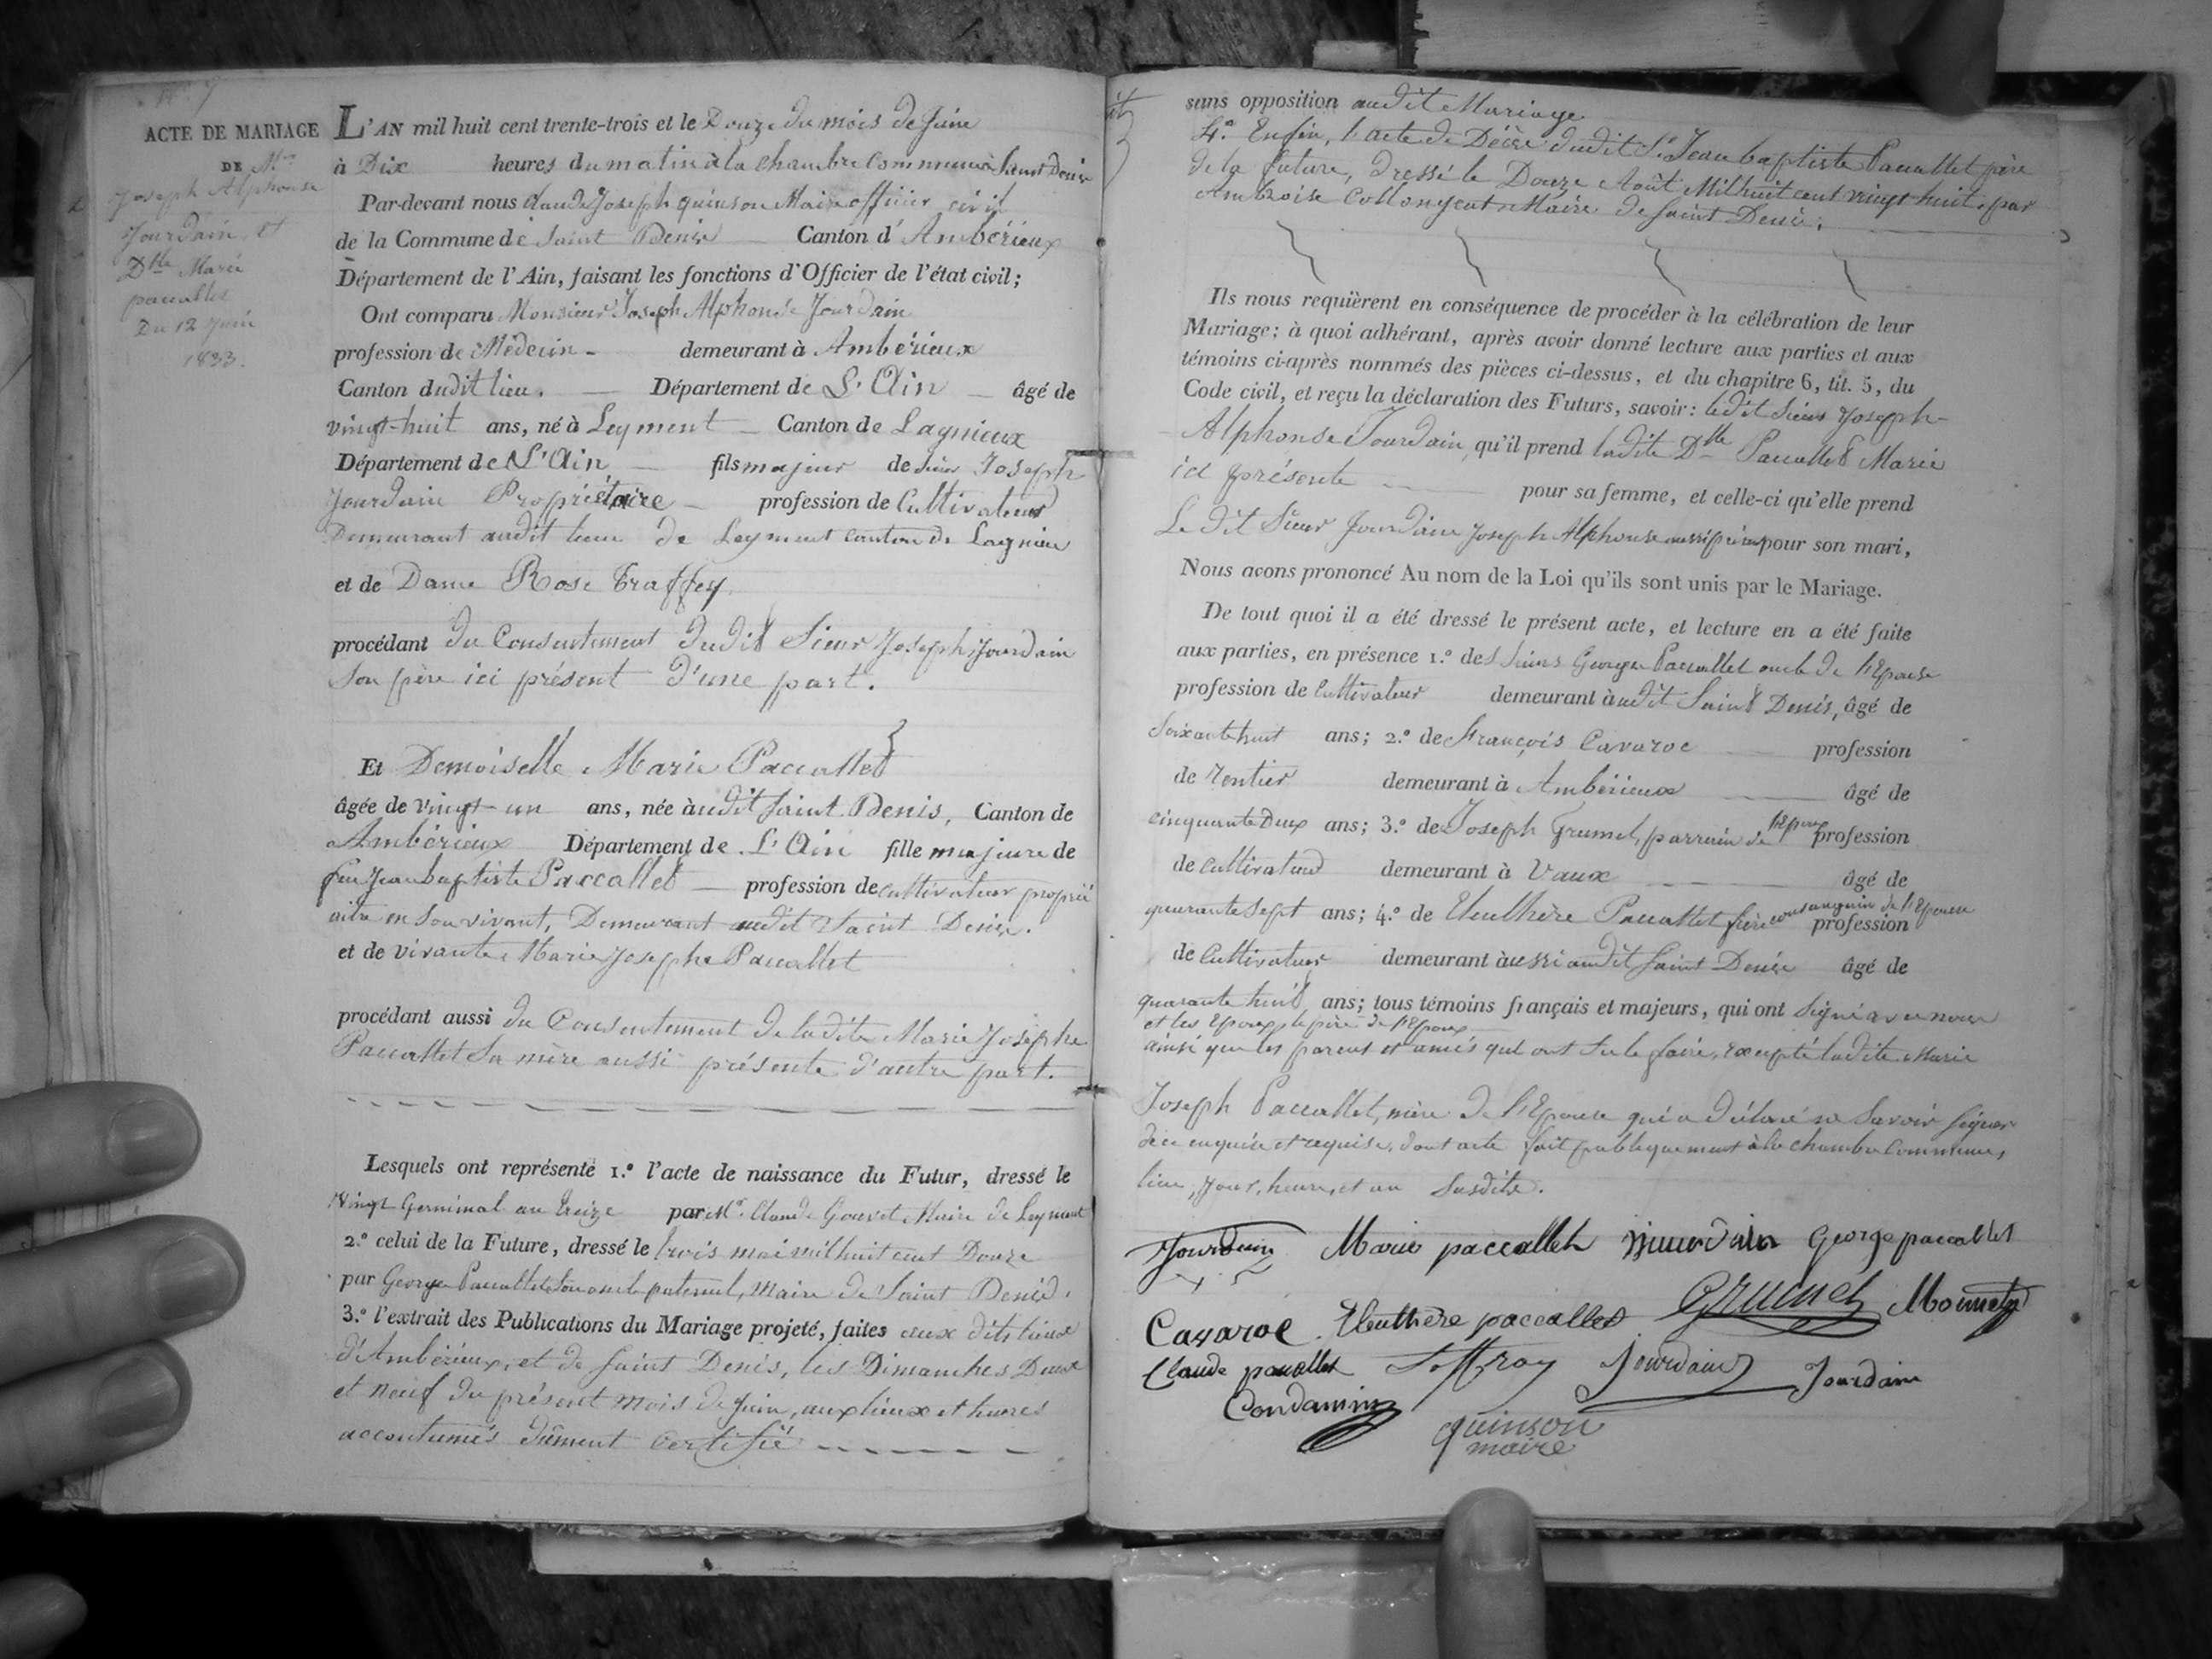 N.° 7
ACTE DE MARIAGE
DE Mr
Joseph Alphonse
Jourdain et
Dlle Marie
paccallet
Du 12 Juin
1833.
L'AN mil huit cent trente-trois et le Douze du mois de Juin
à Dix heures du matin à la chambre Commune à Saint Denis
Par-devant nous Claude Joseph quinson Maire officier civil
de la Commune de Saint Denis Canton d'Ambérieux
Département de l'Ain, faisant les fonctions d'Officier de l'état civil;
Ont comparu Monsieur Joseph Alphonse Jourdain
profession de Médecin demeurant à Ambérieux
Canton dudit lieu. Département de L'Ain âgé de
vingt-huit ans, né à Leyment Canton de Lagnieux
Département de L'Ain fils majeur de Sieur Joseph
Jourdain Propriétaire profession de Cultivateur
Demeurant audit lieu de Leyment Canton de Lagnieu
et de Dame Rose Traffey
procédant du Consentement dudit Sieur Joseph Jourdain
Son père ici présent d'une part.
Et Demoiselle Marie Paccallet
âgée de vingt-un ans, née audit Saint Denis, Canton de
Ambérieux Département de L'Ain fille majeure de
feu Jean baptiste Paccallet profession de cultivateur proprié
aitre en son vivant, Demeurant audit Saint Denis.
et de vivante Marie Josephe Paccallet
procédant aussi du Consentement de ladite Marie Josephe
Paccallet Sa mère aussi présente d'autre part.
Lesquels ont représenté 1.° l'acte de naissance du Futur, dressé le
Vingt Germinal an treize par Mr. Claude Gouvet Maire de Leyment
2.° celui de la Future, dressé le trois mai mil huit cent Douze
par George Paccallet Son oncle paternel, Maire de Saint Denis.
3.° l'extrait des Publications du Mariage projeté, faites aux dits lieux
d'Ambérieux, et de Saint Denis, les Dimanches Deux
et Neuf du présent mois de Juin, aux lieux et heures
accoutumés dûment certifié
sans opposition audit Mariage
4.° Enfin, l'acte de Décès dudit Sr Jean baptiste Paccallet père
de la future, Dressé le Douze Août Mil huit cent vingt huit, par
Ambroise Collongeat Maire de Saint Denis.
Ils nous requièrent en conséquence de procéder à la célébration de leur
Mariage; à quoi adhérant, après avoir donné lecture aux parties et aux
témoins ci-après nommés des pièces ci-dessus, et du chapitre 6, tit. 5, du
Code civil, et reçu la déclaration des Futurs, savoir: ledit Sieur Joseph-
Alphonse Jourdain, qu'il prend ladite Dlle Paccallet Marie
ici présente pour sa femme, et celle-ci qu'elle prend
Le dit Sieur Jourdain Joseph Alphonse aussi présent pour son mari,
Nous avons prononcé Au nom de la Loi qu'ils sont unis par le Mariage.
De tout quoi il a été dressé le présent acte, et lecture en a été faite
aux parties, en présence 1.° des Sieurs George Paccallet oncle de l'Epouse
profession de Cultivateur demeurant audit Saint Denis, âgé de
Soixante huit ans; 2.° de François Cavaroc profession
de rentier demeurant à Ambérieux âgé de
cinquante Deux ans; 3.° de Joseph Grumel, parrain de l'Epoux profession
de Cultivateur demeurant à Vaux âgé de
quarante Sept ans; 4.° de Eleuthère Paccallet frère consanguin de l'Epouse profession
de Cultivateur demeurant aussi audit Saint Denis âgé de
quarante huit ans; tous témoins français et majeurs, qui ont Signé avec nous
et les Epoux, le père de l'Epoux
ainsi que les parens et amis qui ont Su le faire, excepté ladite Marie
Joseph Paccallet, mère de l'Epouse qui a déclaré ne Savoir Signer
de ce enquise et requise, dont acte fait publiquement à la chambre Commune,
lieu, jour, heure, et an Susdits.
Jourdain Marie paccallet Jourdain George paccallet
Cavaroc Eleuthère paccallet Grumel Monnet
Claude paccallet Soffray Jourdain Jourdain
Condamin
quinson
maire